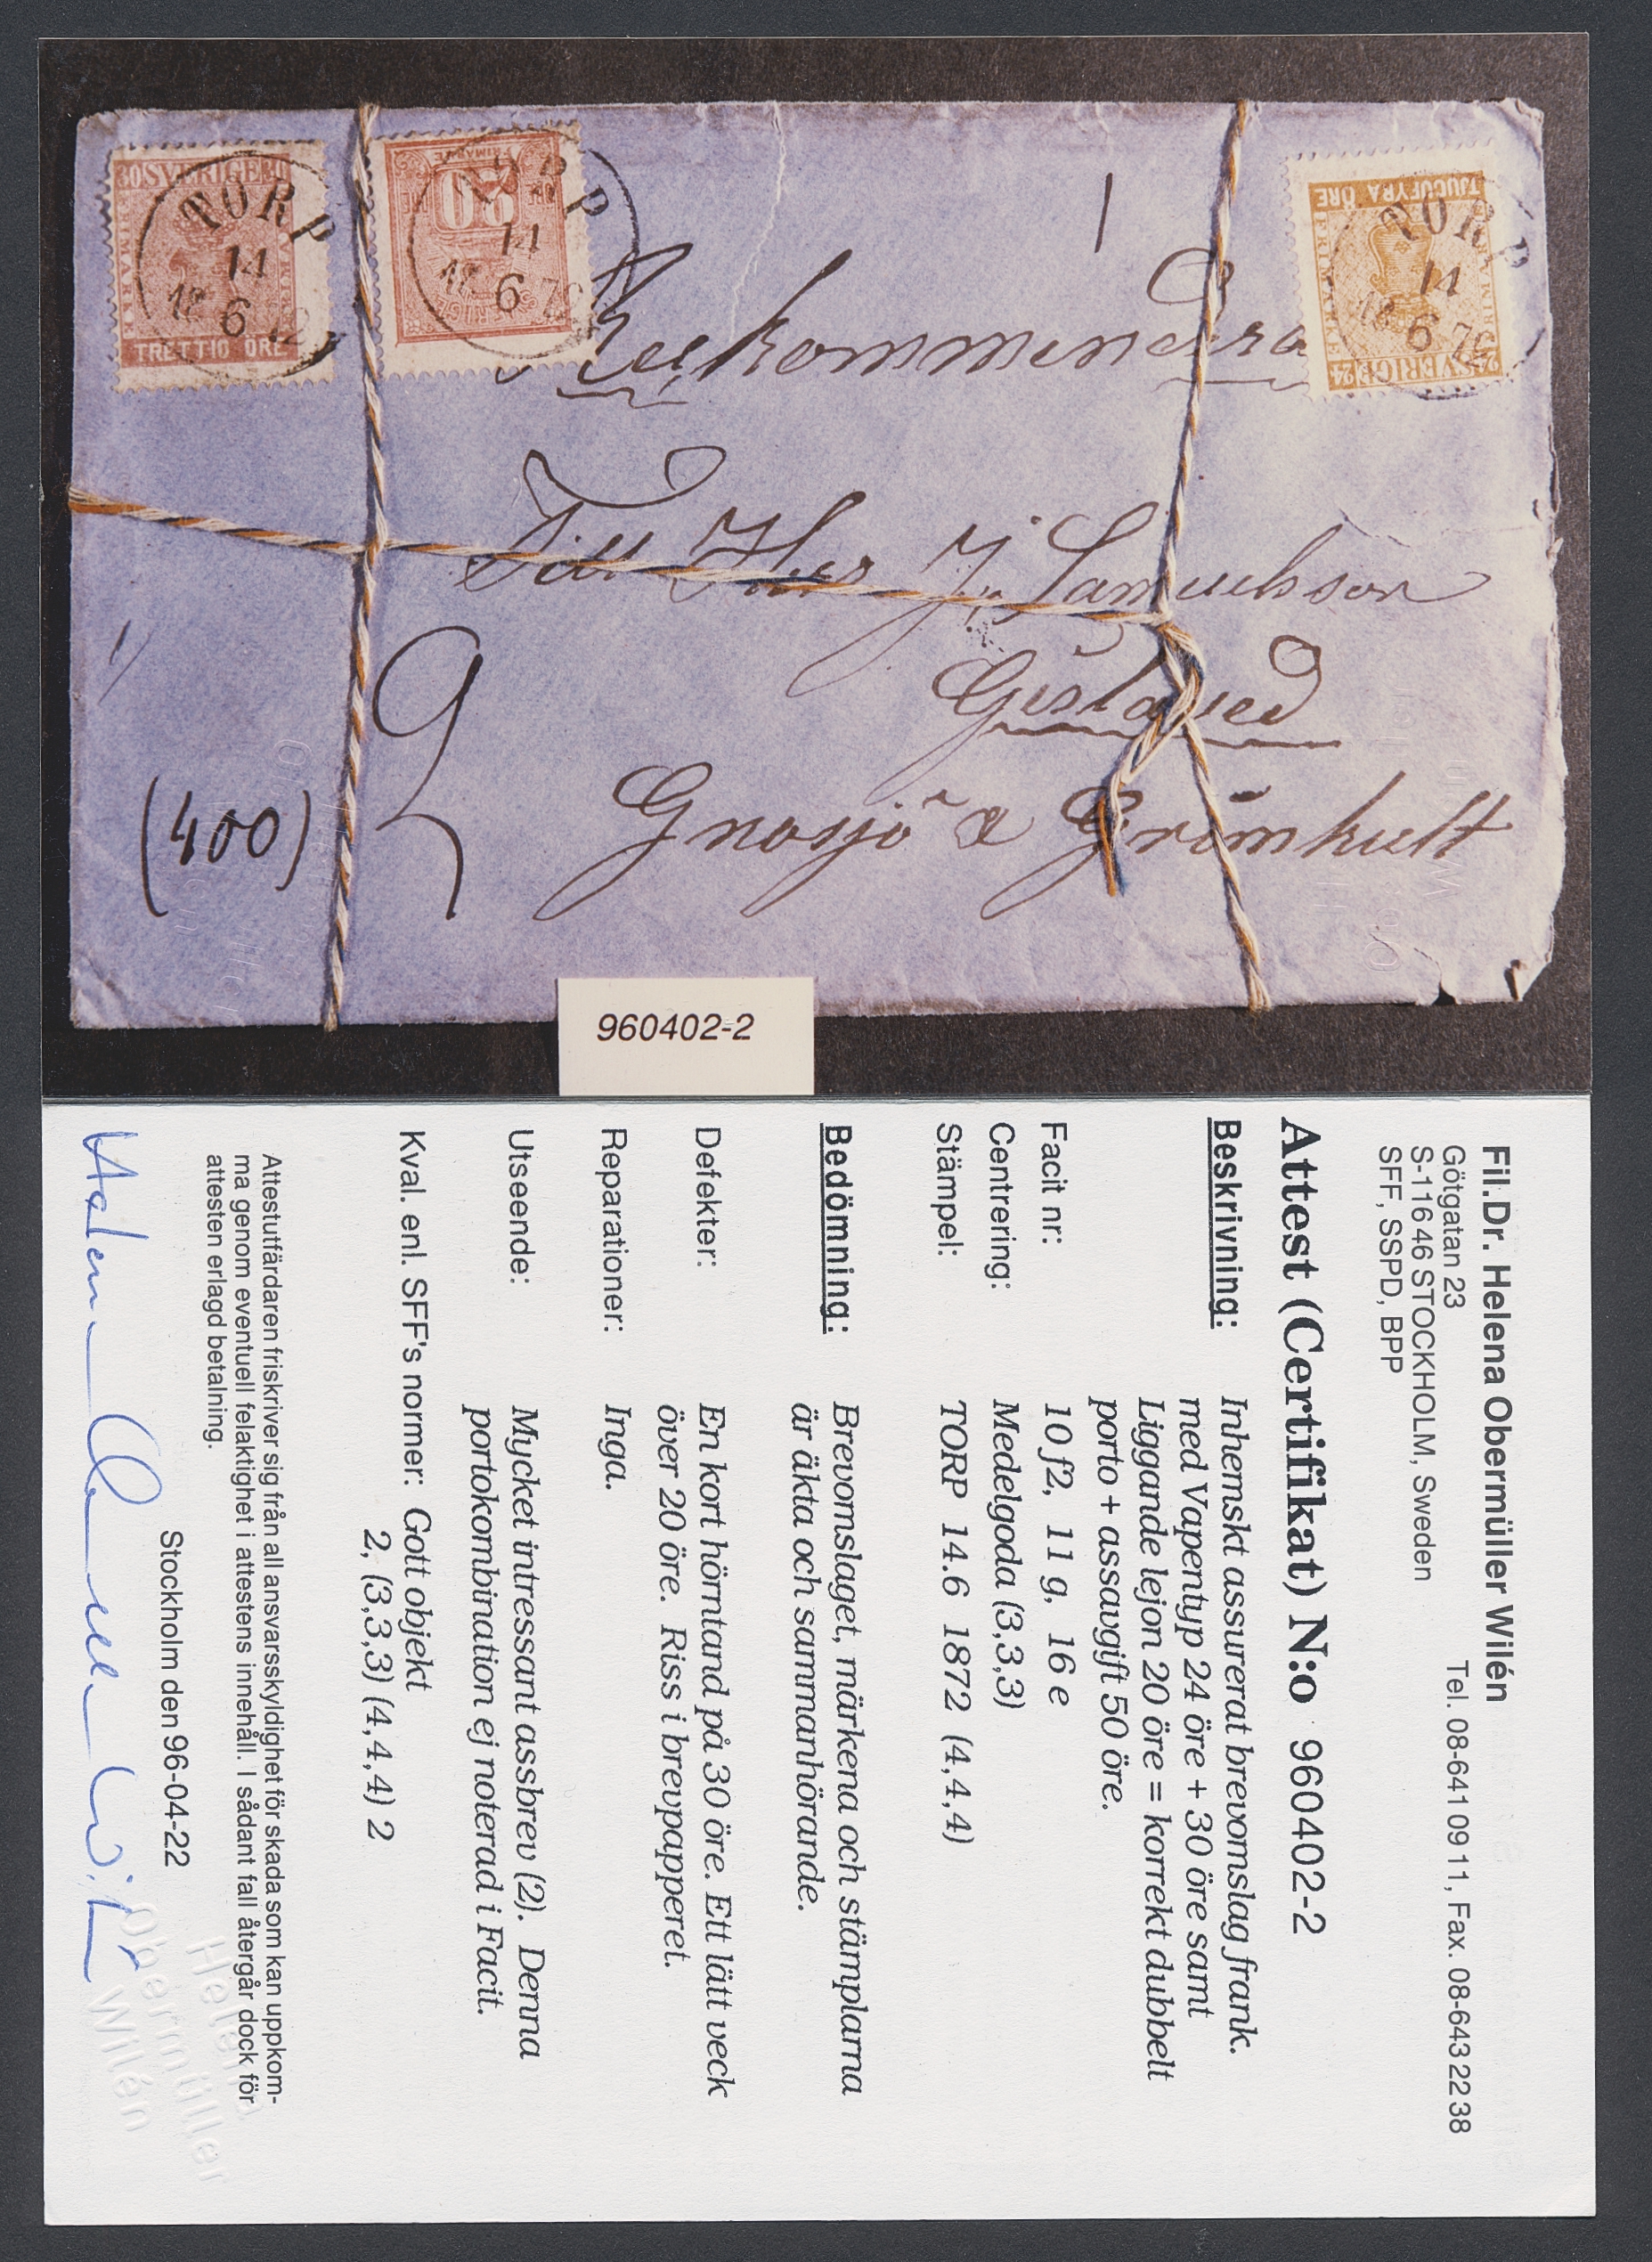 30 SVERIGE 30
FRIMARKE
TRETTIO ÖRE
TORP
14
18 6 72
FRIMÄRKE
20
SVERIGE
TORP
14
18 6 72
TJUGUFYRA ÖRE
FRIMÄRKE
24 SVERIGE 24
TORP
14
18 6 72
Reekommendera
Till Her J. Samuelsson
Gislaved
(400)
Gnosjö & Grimhult
960402-2
Fil.Dr. Helena Obermüller Wilén
Götgatan 23
S-116 46 STOCKHOLM, Sweden
SFF, SSPD, BPP
Tel. 08-641 09 11, Fax. 08-643 22 38
Attest (Certifikat) N:o 960402-2
Beskrivning: Inhemskt assurerat brevomslag frank.
med Vapentyp 24 öre + 30 öre samt
Liggande lejon 20 öre = korrekt dubbelt
porto + assavgift 50 öre.
Facit nr: 10 f2, 11 g, 16 e
Centrering: Medelgoda (3,3,3)
Stämpel: TORP 14.6 1872 (4,4,4)
Bedömning: Brevomslaget, märkena och stämplarna
är äkta och sammanhörande.
Defekter: En kort hörntand på 30 öre. Ett lätt veck
över 20 öre. Riss i brevpapperet.
Reparationer: Inga.
Utseende: Mycket intressant assbrev (2). Denna
portokombination ej noterad i Facit.
Kval. enl. SFF's normer: Gott objekt
2, (3,3,3) (4,4,4) 2
Attestutfärdaren friskriver sig från all ansvarsskyldighet för skada som kan uppkom-
ma genom eventuell felaktighet i attestens innehåll. I sådant fall återgår dock för
attesten erlagd betalning.
Stockholm den 96-04-22
Helena
Obermüller
Wilén